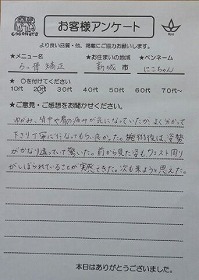 お客様アンケート
より良い品質・他、提案にご協力お願いします。
★メニュー名 ★お住まいの地域 ★ペンネーム
矯正 新城 市 にこちゃん
★ ○を付けてください
10代 20代 30代 40代 50代 60代 70代〜
★ご意見・ご感想をお聞かせください。
ゆがみ、背中や肩の痛みが気になっていたが、よく分かって
下さり丁寧に行なってもらい良かった。施術後は、姿勢
がかなり違っていて驚いた。前から見た形もウエスト周り
がしぼられていることが実感できた。次も来ようと思えた。
本日はありがとうございました。